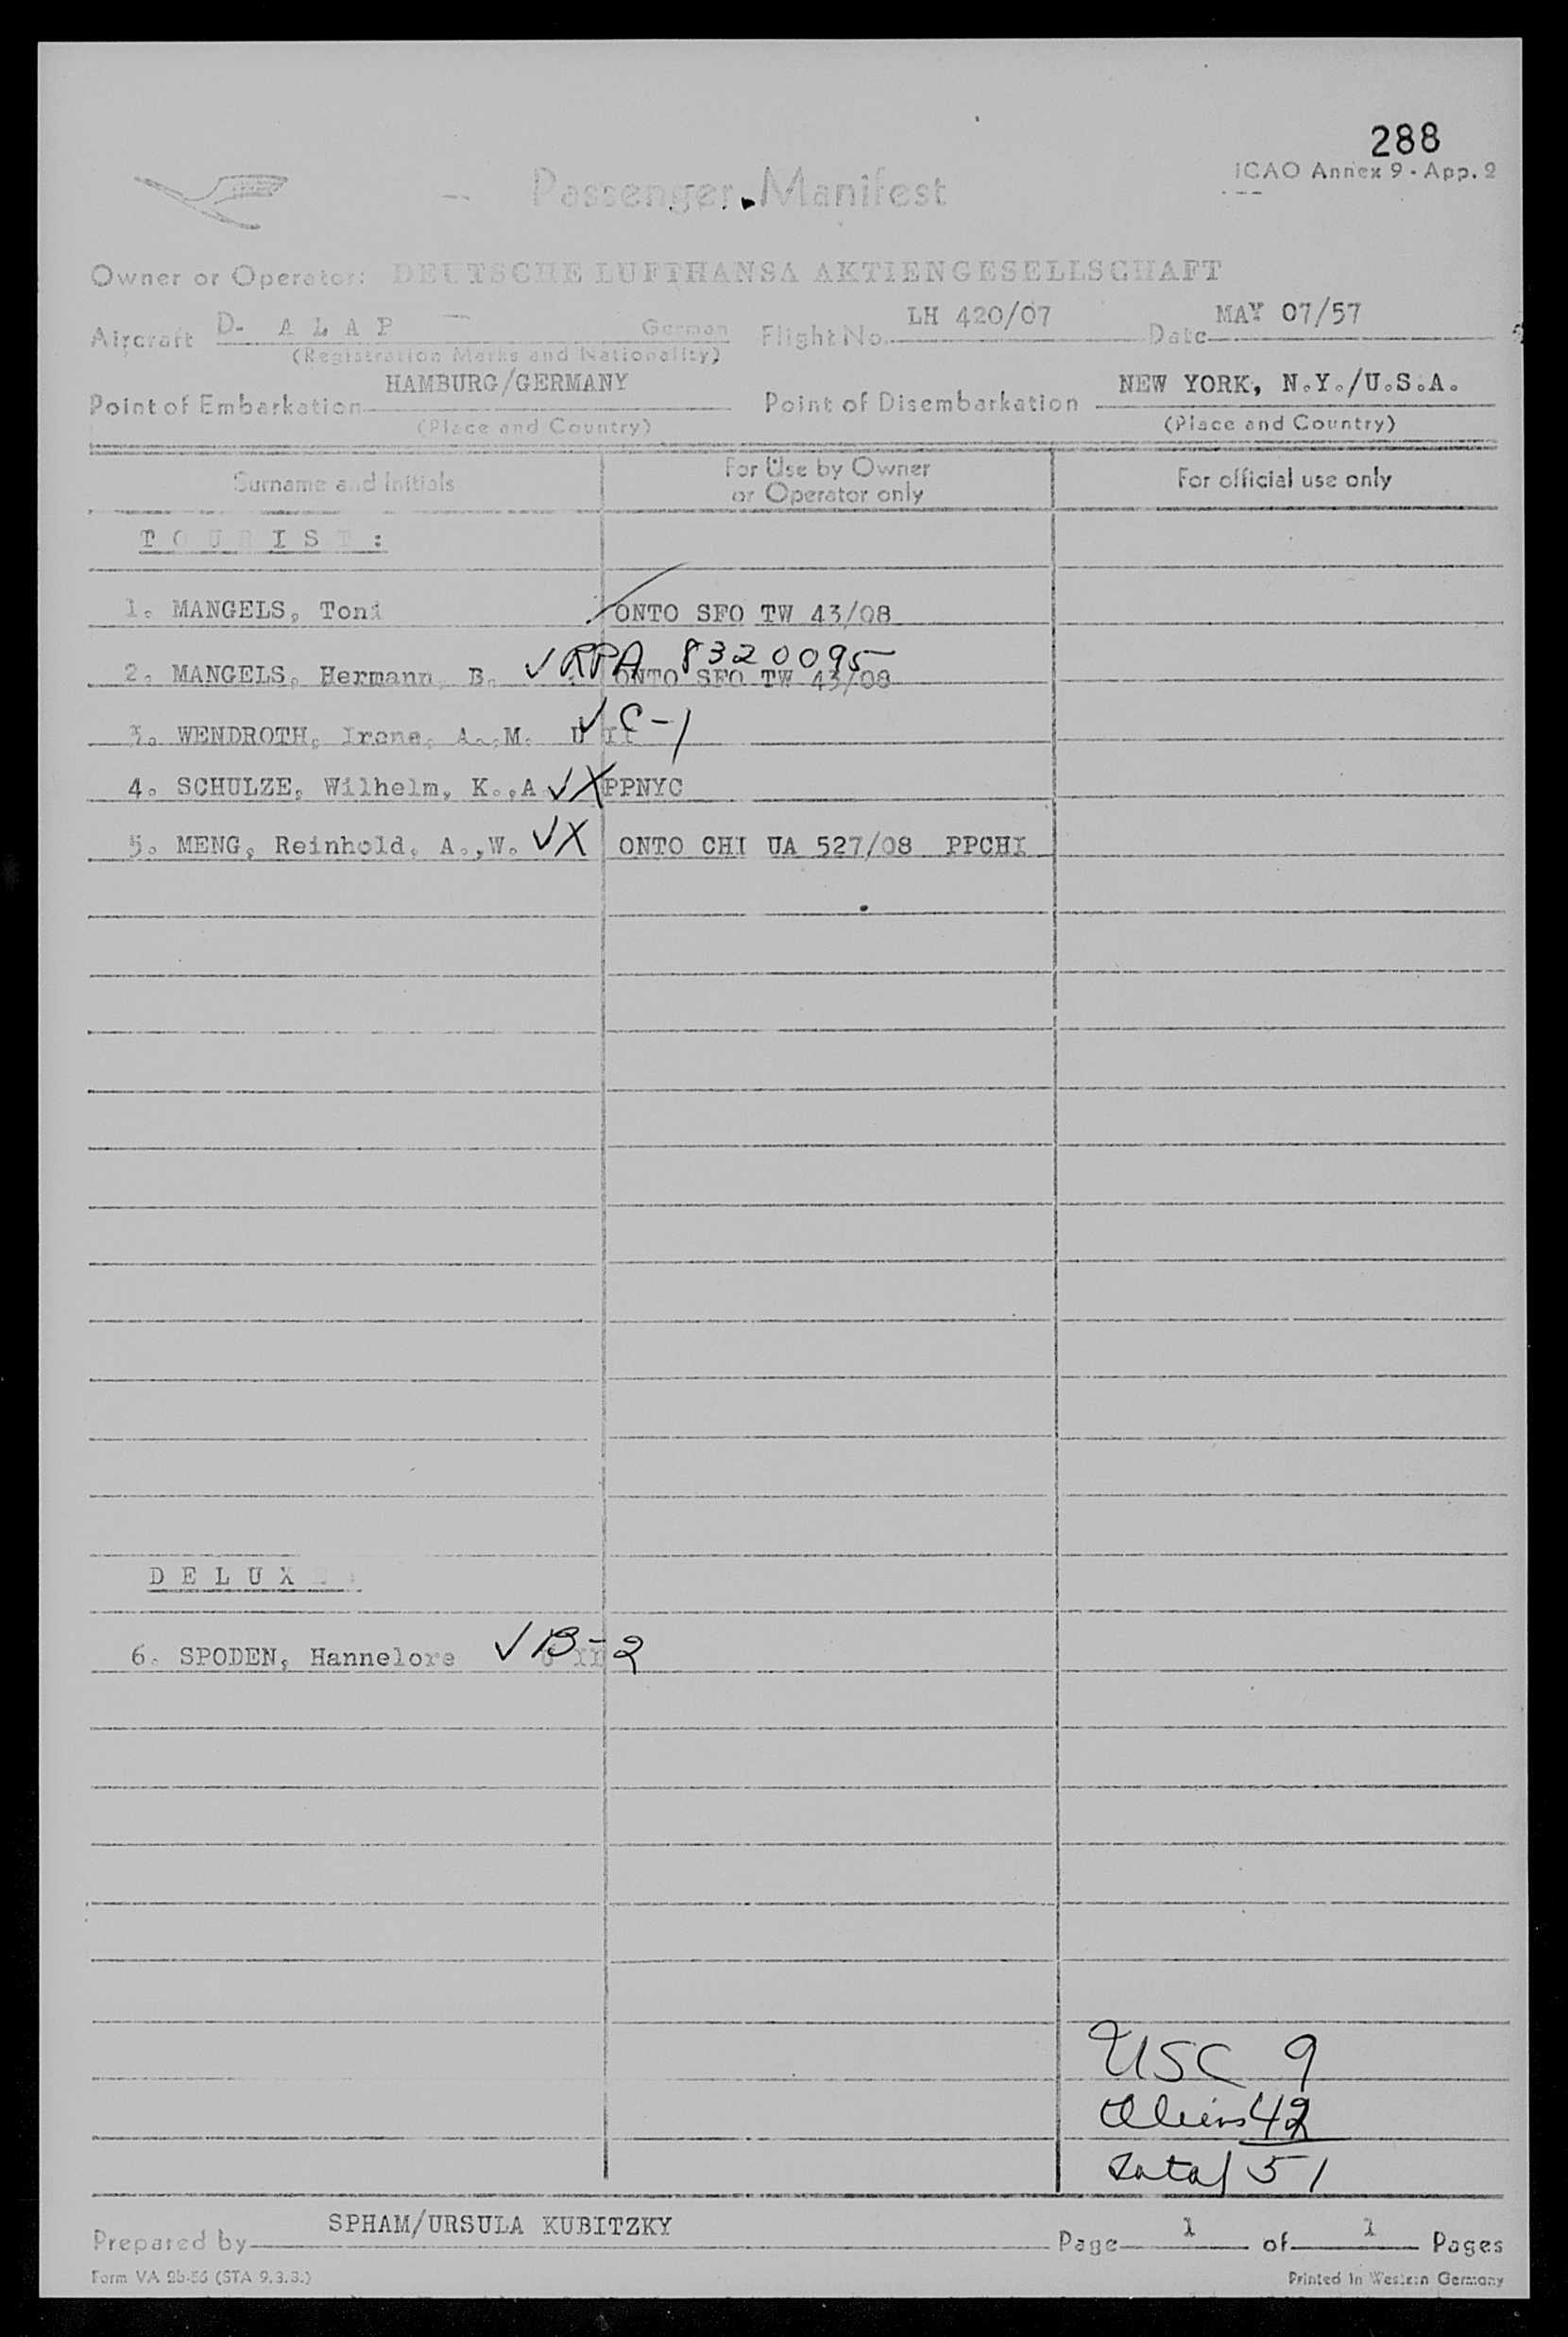 288
ICAO Annex 9 - App. 2
Passenger Manifest
Owner or Operator: DEUTSCHE LUFTHANSA AKTIENGESELLSCHAFT
Aircraft D- A L A P German Flight No. LH 420/07 Date MAY 07/57
(Registration Marks and Nationality)
Point of Embarkation HAMBURG/GERMANY Point of Disembarkation NEW YORK, N.Y./U.S.A.
(Place and Country) (Place and Country)
Surname and Initials For Use by Owner or Operator only For official use only
T O U R I S T :
1. MANGELS, Toni ONTO SFO TW 43/08
2. MANGELS, Hermann B. ✓ RPA 8320095 ONTO SFO TW 43/08
3. WENDROTH, Irene, A.,M. U II ✓ C-1
4. SCHULZE, Wilhelm, K.,A ✓ X PPNYC
5. MENG, Reinhold, A.,W. ✓ X ONTO CHI UA 527/08 PPCHI
D E L U X E :
6. SPODEN, Hannelore ✓ B-2
USC 9
Aliens 42
Total 51
Prepared by SPHAM/URSULA KUBITZKY Page 1 of 1 Pages
Form VA 2b-56 (STA 9.3.3.) Printed in Western Germany